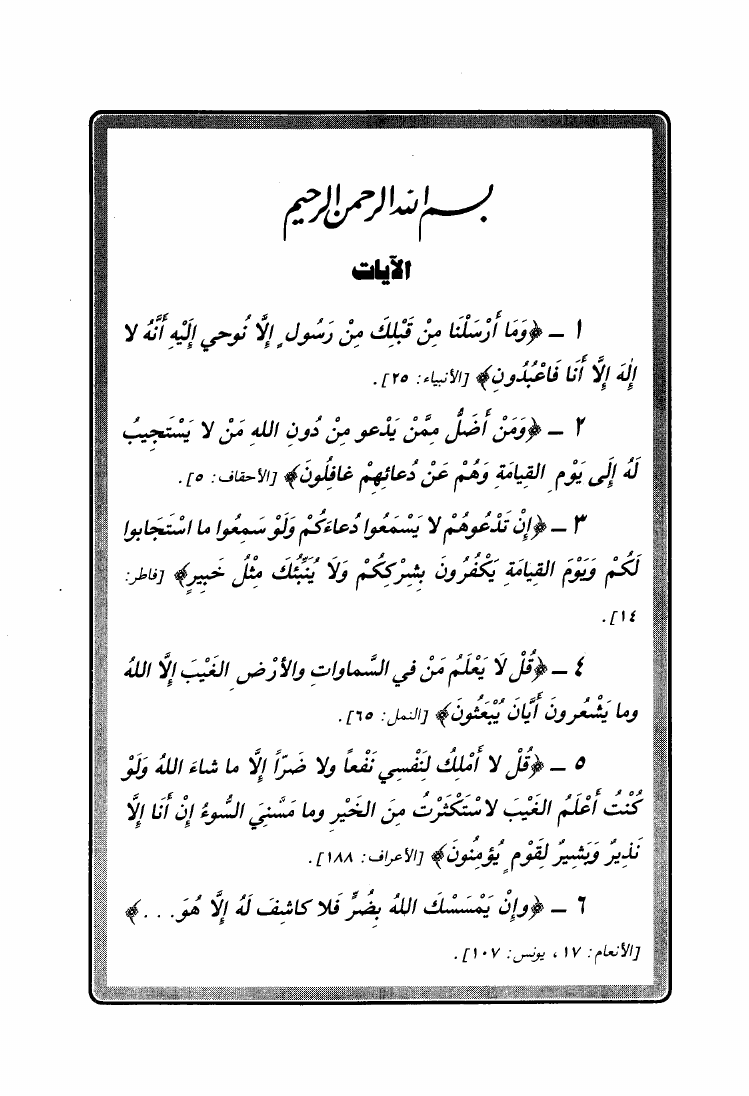 بسم الله الرحمن الرحيم
الآيات
١ ـ ﴿وَمَا أَرْسَلْنَا مِنْ قَبْلِكَ مِنْ رَسُولٍ إِلَّا نُوحي إِلَيْهِ أَنَّهُ لا
إِلٰهَ إِلَّا أَنا فَاعْبُدُونِ﴾ [الأنبياء: ٢٥].
٢ ـ ﴿وَمَنْ أَضَلُّ مِمَّنْ يَدْعو مِنْ دُونِ اللهِ مَنْ لا يَسْتَجِيبُ
لَهُ إِلَى يَوْمِ القِيامَةِ وَهُمْ عَنْ دُعائِهِمْ غافِلُونَ﴾ [الأحقاف: ٥].
٣ ـ ﴿إِنْ تَدْعُوهُمْ لا يَسْمَعُوا دُعاءَكُمْ وَلَوْ سَمِعُوا ما اسْتَجابوا
لَكُمْ وَيَوْمَ القِيامَةِ يَكْفُرُونَ بِشِرْكِكُمْ وَلَا يُنَبِّئُكَ مِثْلُ خَبِيرٍ﴾ [فاطر:
١٤].
٤ ـ ﴿قُلْ لَا يَعْلَمُ مَنْ في السَّماواتِ والأرْضِ الغَيْبَ إِلَّا اللهُ
وما يَشْعُرونَ أَيَّانَ يُبْعَثُونَ﴾ [النمل: ٦٥].
٥ ـ ﴿قُلْ لا أَمْلِكُ لِنَفْسِي نَفْعاً ولا ضَرّاً إِلَّا ما شاءَ اللهُ وَلَوْ
كُنْتُ أَعْلَمُ الغَيْبَ لاسْتَكْثَرْتُ مِنَ الخَيْرِ وما مَسَّنِيَ السُّوءُ إِنْ أَنَا إِلَّا
نَذِيرٌ وَبَشِيرٌ لِقَوْمٍ يُؤمِنُونَ﴾ [الأعراف: ١٨٨].
٦ ـ ﴿وإِنْ يَمْسَسْكَ اللهُ بِضُرٍّ فَلا كاشِفَ لَهُ إِلَّا هُوَ. . .﴾
[الأنعام: ١٧ ، يونس: ١٠٧].